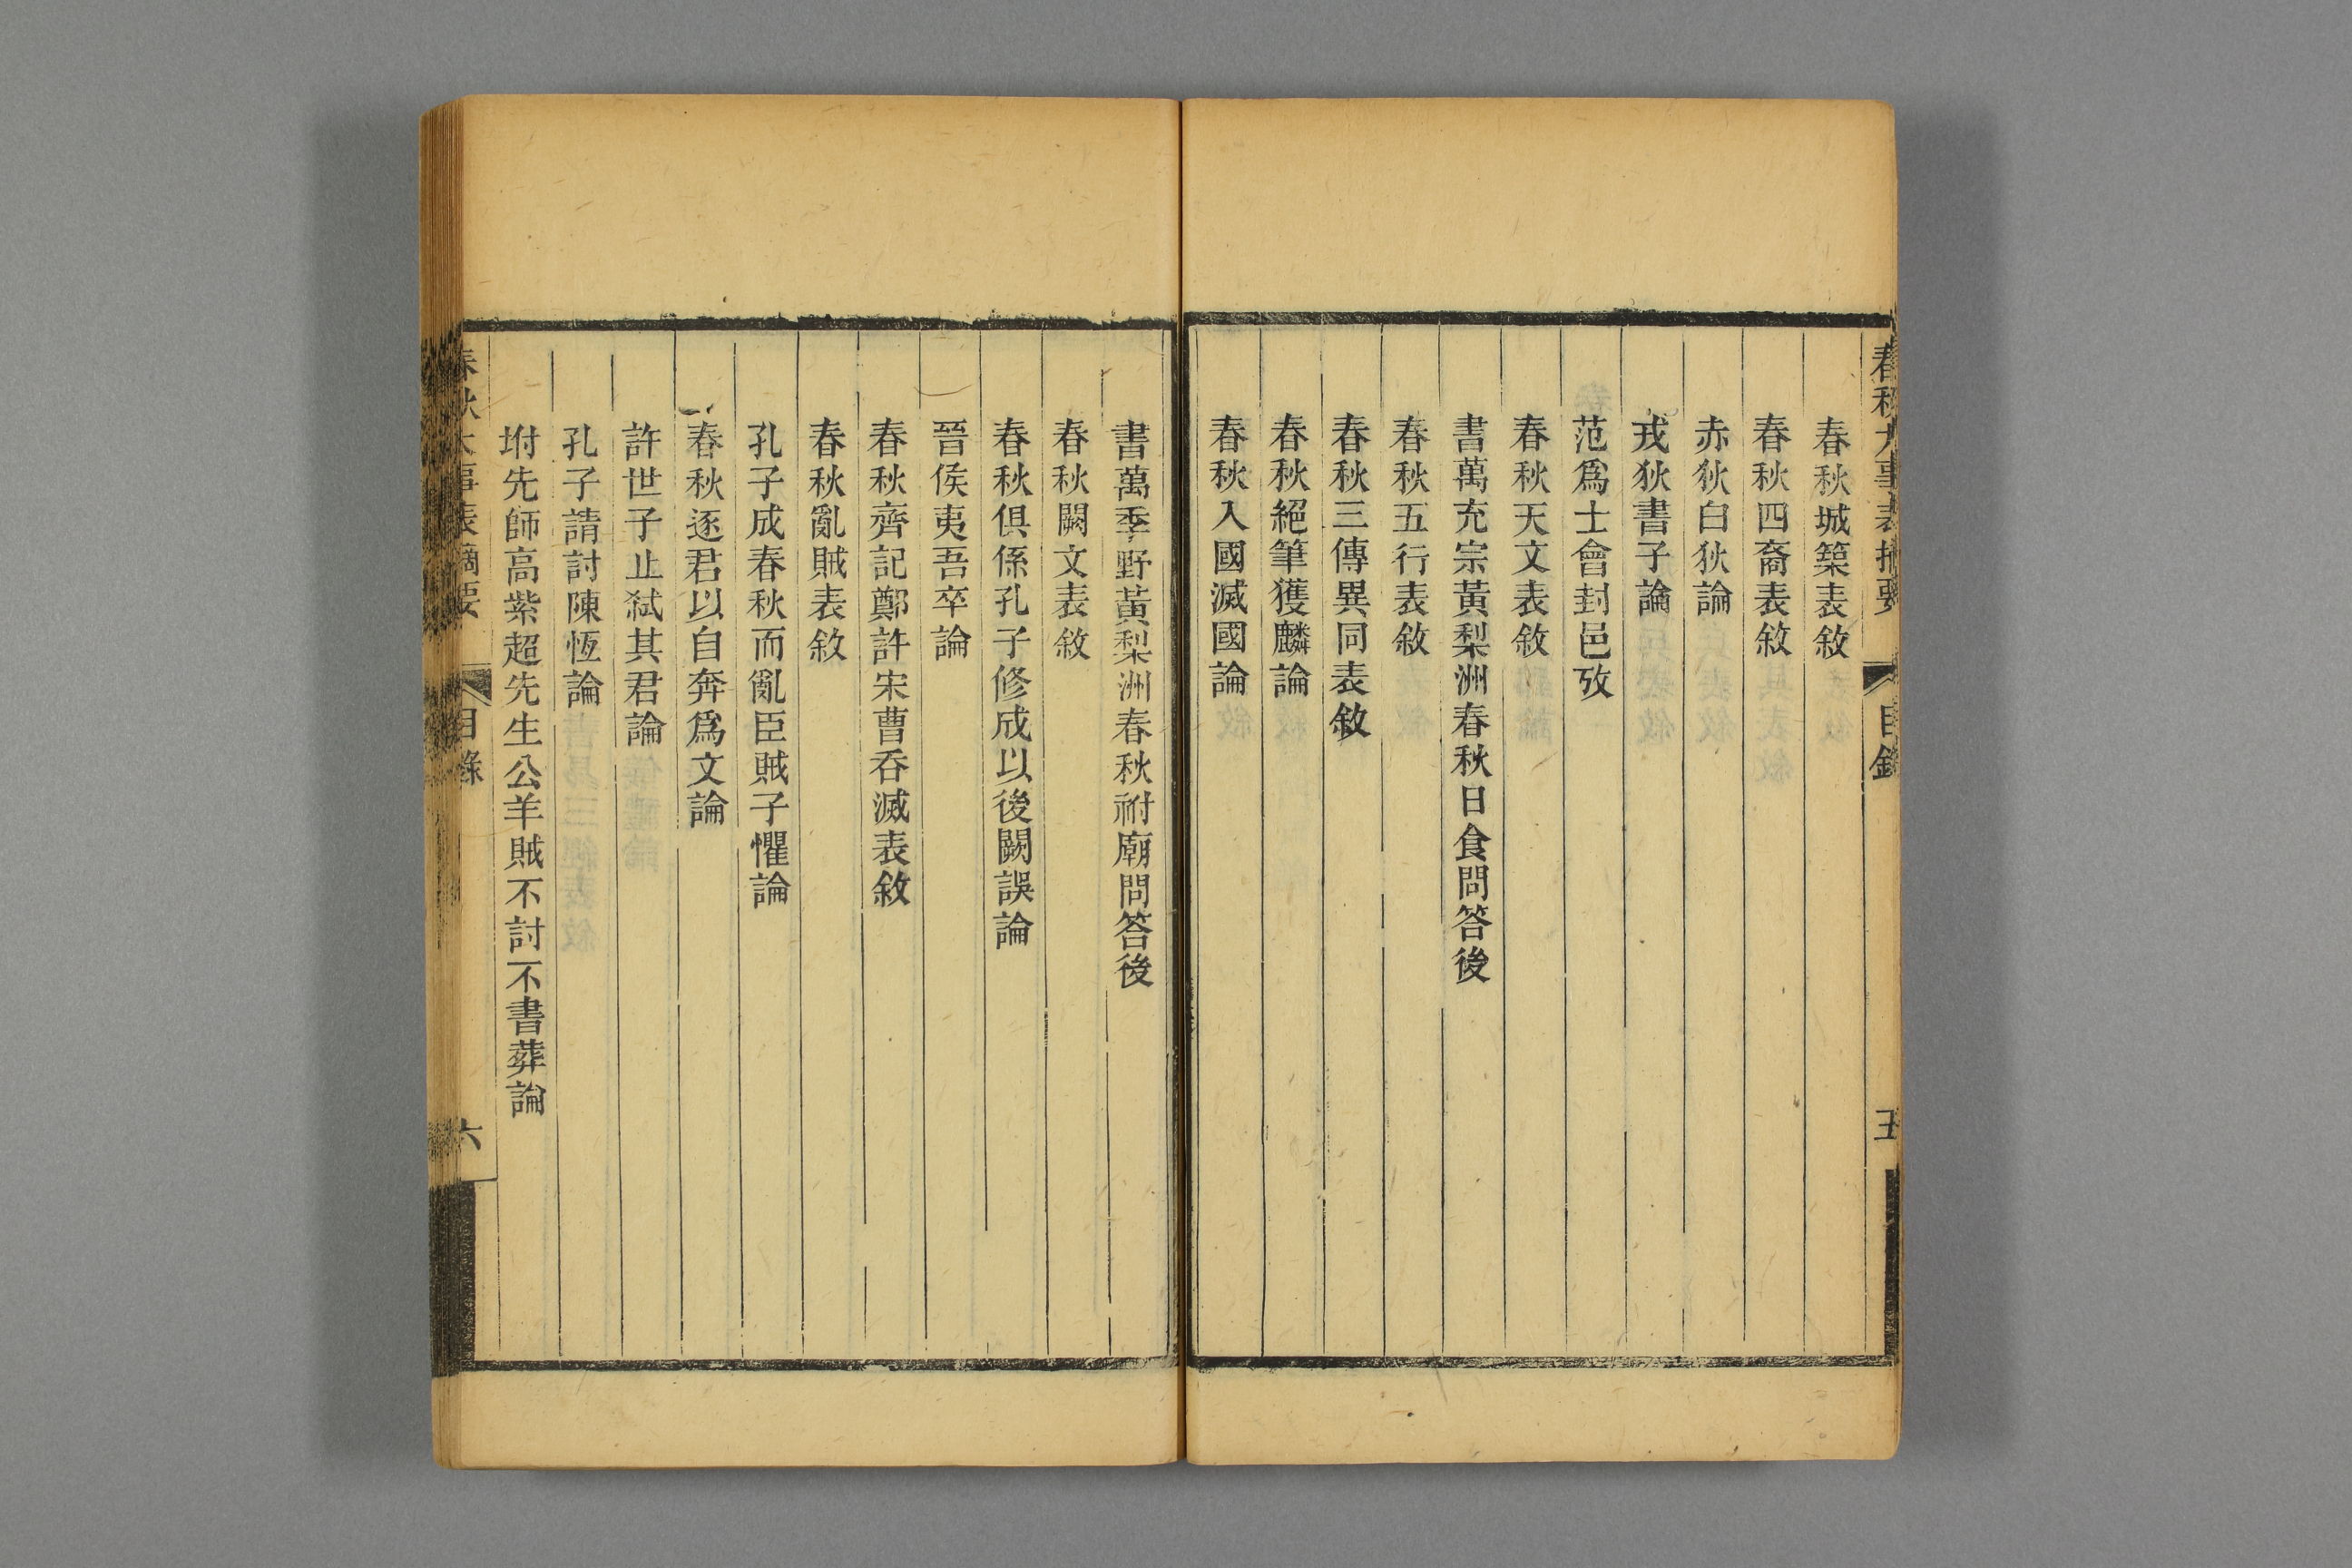 春秋大事表摘要
目錄
五
春秋城築表敘
春秋四裔表敘
赤狄白狄論
戎狄書子論
范爲士會封邑攷
春秋天文表敘
書萬充宗黃梨洲春秋日食問答後
春秋五行表敘
春秋三傳異同表敘
春秋絕筆獲麟論
春秋入國滅國論
書萬季野黃梨洲春秋祔廟問答後
春秋闕文表敘
春秋俱係孔子修成以後闕誤論
晉侯夷吾卒論
春秋齊記鄭許宋曹吞滅表敘
春秋亂賊表敘
孔子成春秋而亂臣賊子懼論
春秋逐君以自奔爲文論
許世子止弑其君論
孔子請討陳恆論
坿先師高紫超先生公羊賊不討不書葬論
春秋大事表摘要
目錄
六